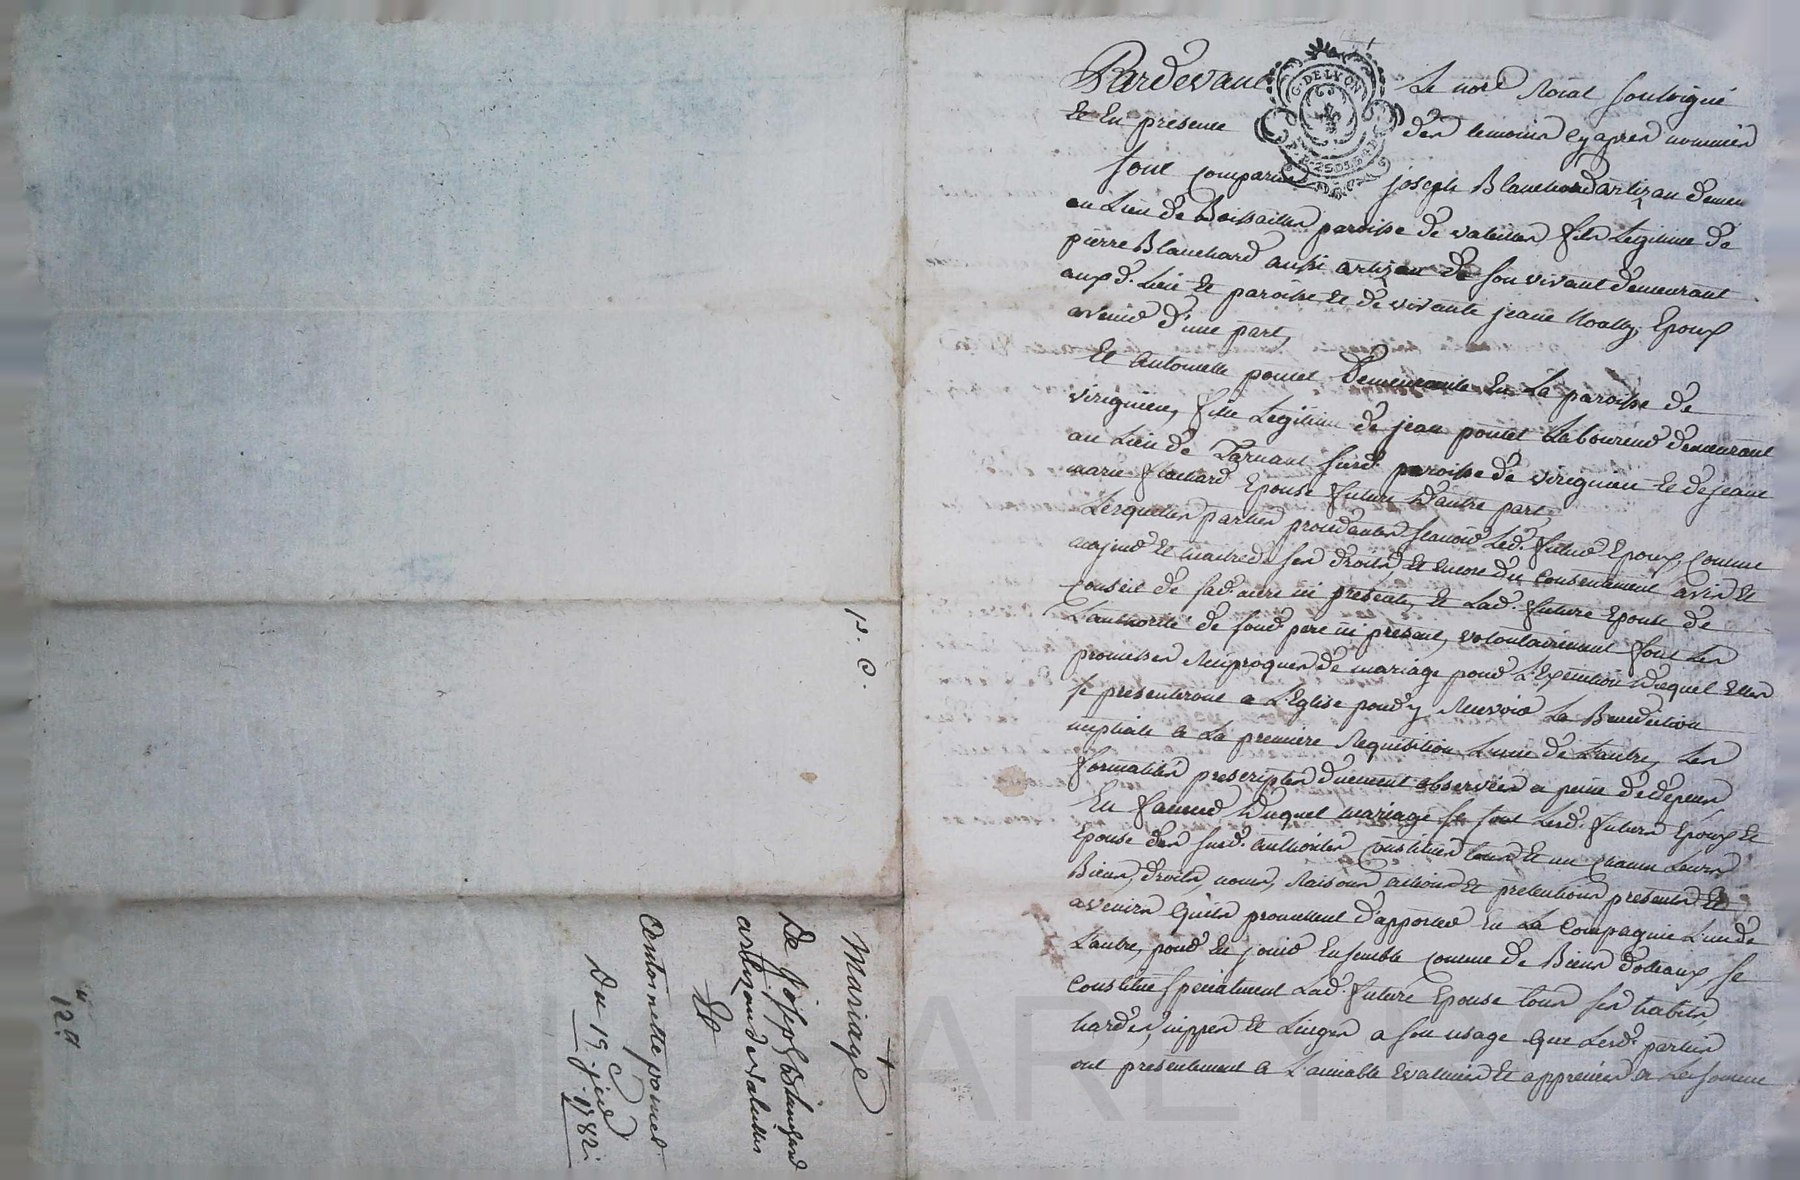 Pardevant Le nore Roial soubsigné
Et En presence des temoins cy apres nommés
G. DE LYON
sont comparus joseph Blanchard artizan demeu
au Lieu de Boissailles paroisse de valeilles fils Legitime de
pierre Blanchard aussi artizan de son vivant demeurant
auxd. Lieu Et paroisse Et de vivante jeane Epoux
avenir d'une part,
Et Antoinette poncet Demeurante En La paroisse de
virignieu, fille Legitime de jean poncet Laboureur demeurant
au Lieu de Tarnant susd. paroisse de virignieu Et de jeane
marie flachard Epouse future D'autre part,
Lesquelles parties procedantes scavoir Led. futur Epoux, comme
majeur Et maitre de ses droits, Et encore du Consentement avis Et
conseil de sad. mere ici presente, Et Lad. future Epouse de
L'authorité de sond. pere ici present, volontairement font Les
promesses Reciproques de mariage pour L'Execution Duquel Elles
se presenteront a L'Eglise pour y Recevoir La Benediction
nuptiale a La premiere Requisition L'une de L'autre, Les
formalités prescriptes duement observées a peine de depens,
En faveur Duquel mariage se sont Lesd. futurs Epoux Et
Epouse des susd. authorités constitués tous Et un chacun Leurs
Biens, droits, noms, Raisons actions Et pretentions presents Et
avenirs quils promettent d'apporter En La Compagnie L'un de
L'autre, pour En jouir Ensemble comme de Biens dotaux, se
Constitue specialement Lad. future Epouse tous ses habits,
hardes, nippes Et Linges a son usage que Lesd. parties
ont presentement a L'amiable Evalués Et appreciés a La somme
p. C.
Mariage
De Joseph Blanchard
artizan de valeilles
Et
Antoinette poncet
Du 19. jer 1782.
12